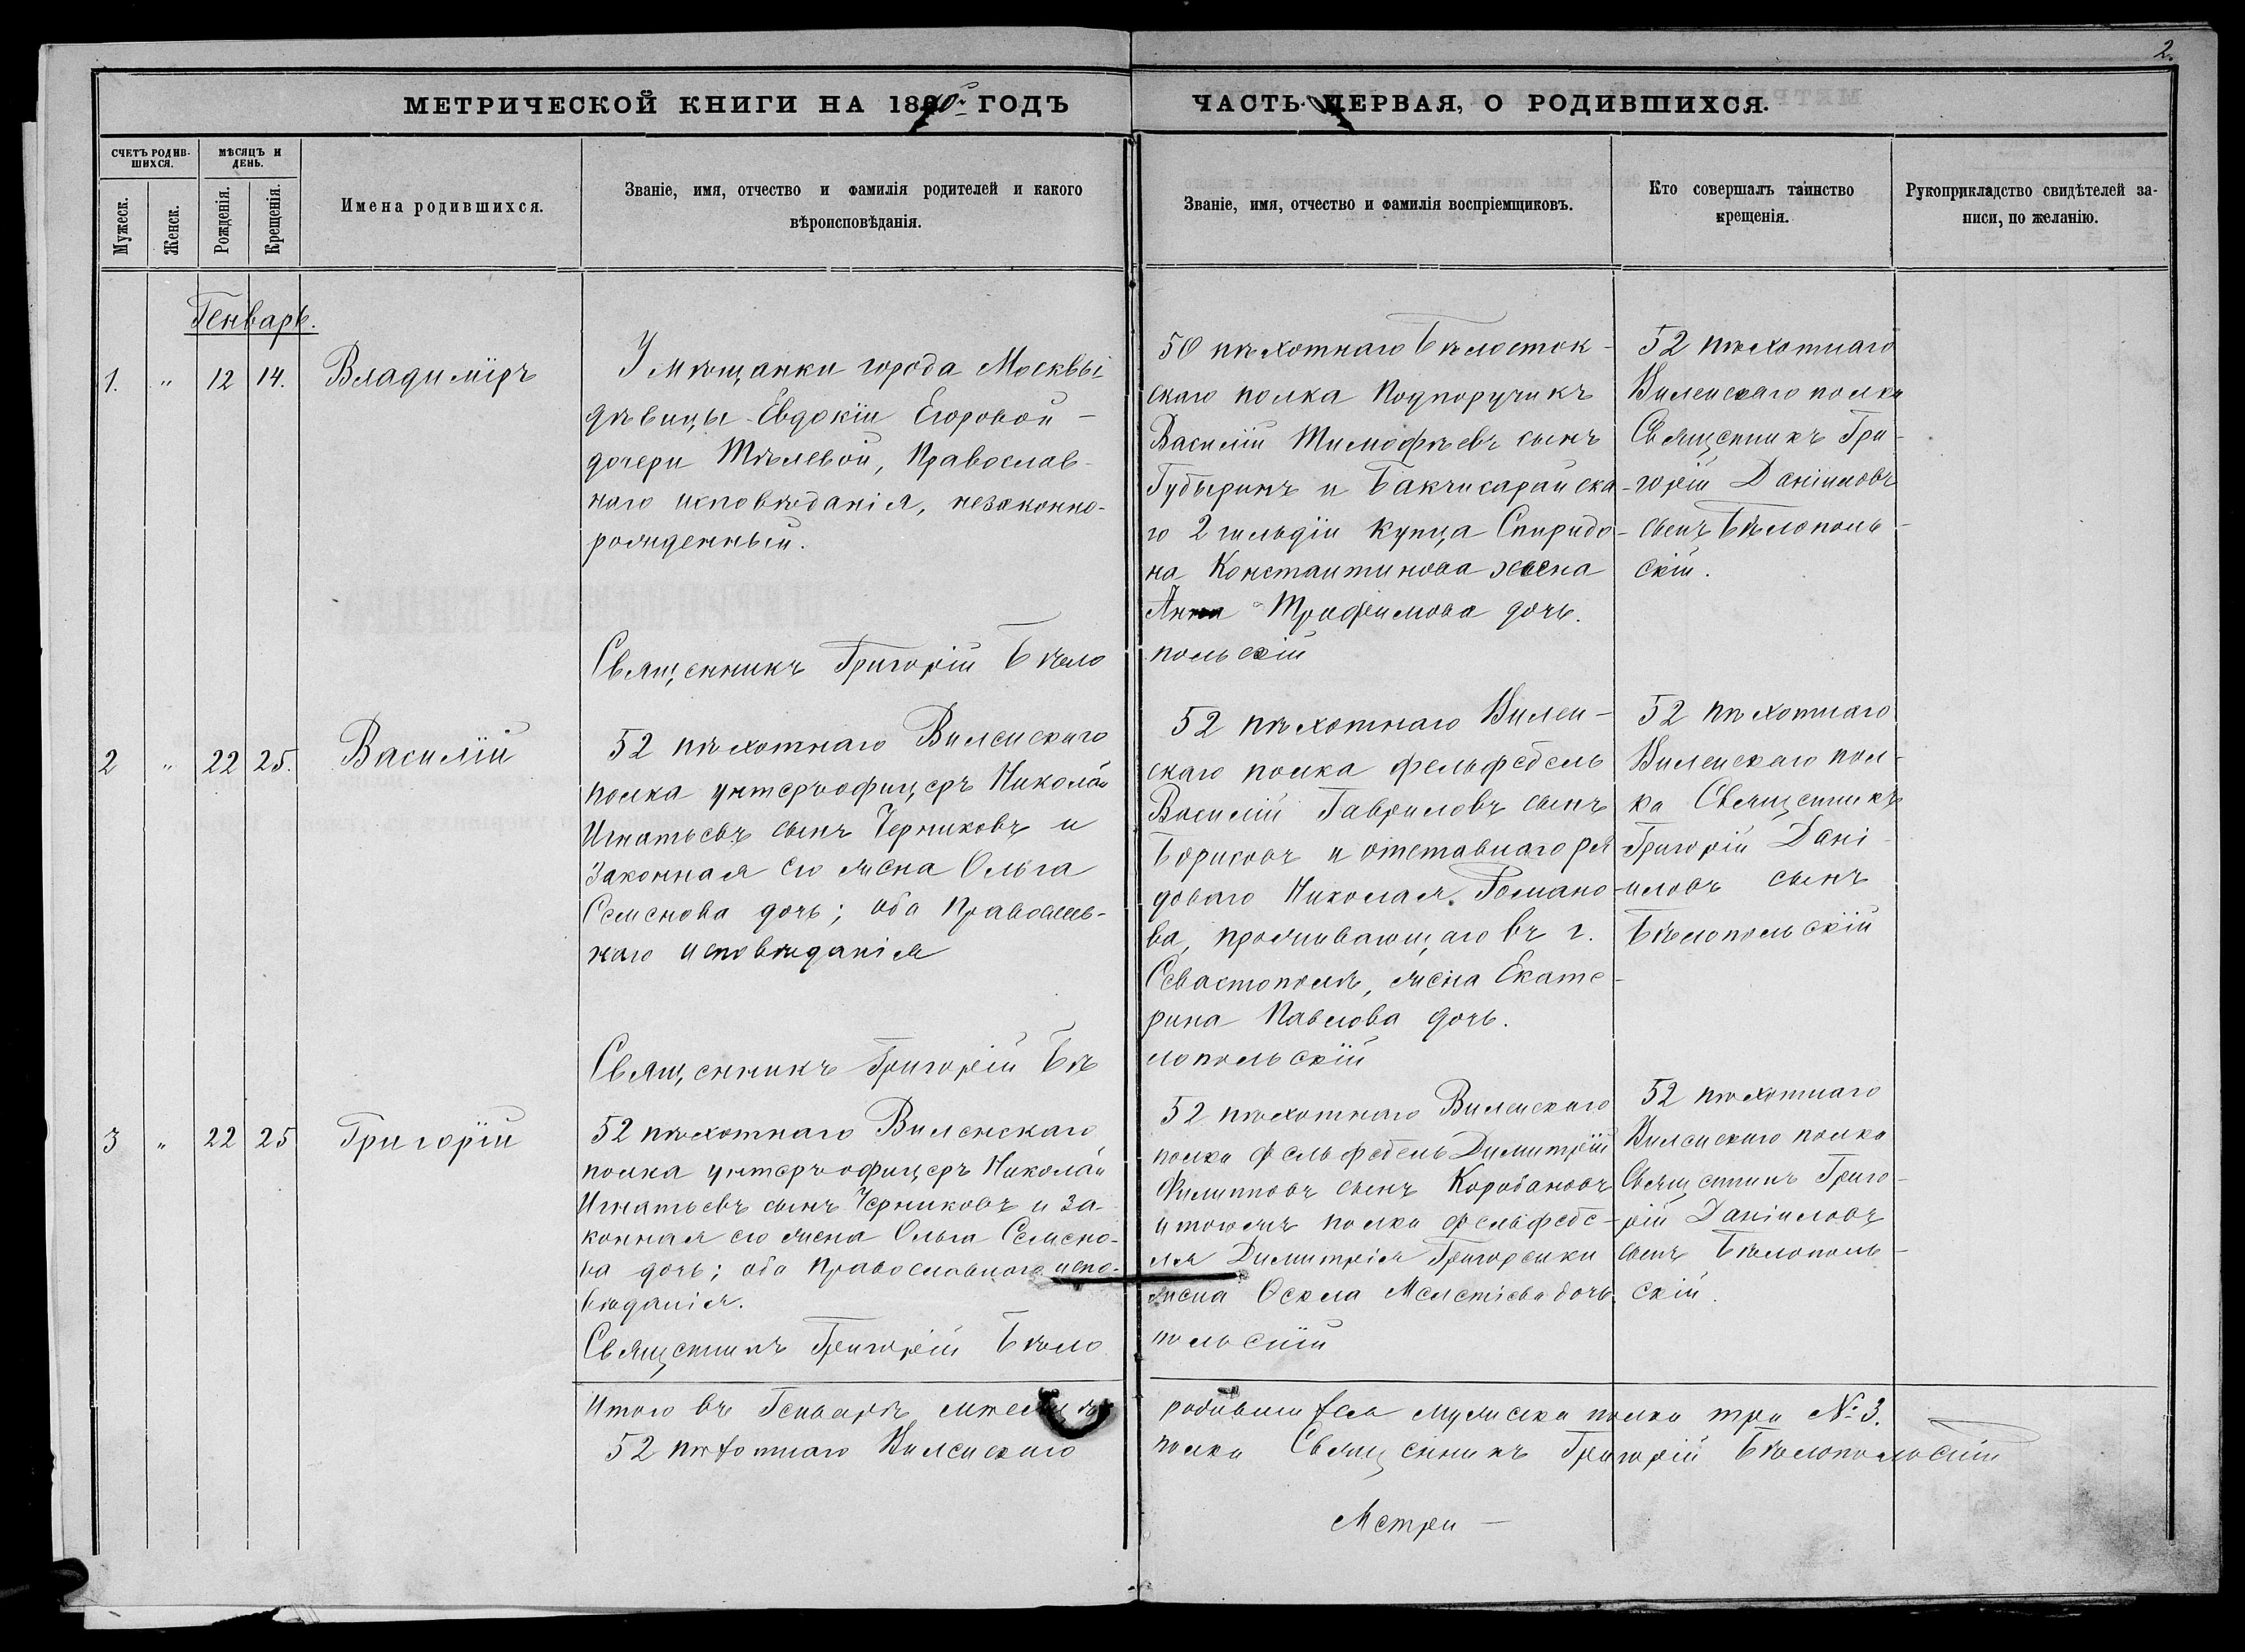 2.
МЕТРИЧЕСКОЙ КНИГИ НА 1890й ГОДЪ
ЧАСТЬ ПЕРВАЯ, О РОДИВШИХСЯ.
СЧЕТЪ РОДИВ-
ШИХСЯ.
МѢСЯЦЪ И
ДЕНЬ.
Мужеск.
Женск.
Рожденія.
Крещенія.
Имена родившихся.
Званіе, имя, отчество и фамилія родителей и какого
вѣроисповѣданія.
Званіе, имя, отчество и фамилія воспріемщиковъ.
Кто совершалъ таинство
крещенія.
Рукоприкладство свидѣтелей за-
писи, по желанію.
Генварь.
1. " 12 14. Владиміръ
У мѣщанки города Москвы
дѣвицы Евдокіи Егоровой
дочери Тѣлевой, Православ-
наго исповѣданія, незаконно-
рожденный.
Священникъ Григорій Бѣло
50 пѣхотнаго Бѣлосток-
скаго полка Подпоручикъ
Василій Тимофѣевъ сынъ
Губыринъ и Бакчисарайска-
го 2 гильдіи купца Спиридо-
на Константинова жена
Анна Трофимова дочь.
польскій
52 пѣхотнаго
Виленскаго полка
Священникъ Гри-
горій Даніиловъ
сынъ Бѣлополь-
скій.
2 " 22 25. Василій
52 пѣхотнаго Виленскаго
полка унтеръ-офицеръ Николай
Игнатьевъ сынъ Черниковъ и
законная его жена Ольга
Семенова дочь; оба Православ-
наго исповѣданія
Священникъ Григорій Бѣ
52 пѣхотнаго Вилен-
скаго полка фельфебель
Василій Гавриловъ сынъ
Борисовъ и отставнаго ря
доваго Николая Романо-
ва, проживающаго въ г.
Севастополѣ, жена Екате-
рина Павлова дочь.
лопольскій
52 пѣхотнаго
Виленскаго пол-
ка Священникъ
Григорій Дані-
иловъ сынъ
Бѣлопольскій
3 " 22 25 Григорій
52 пѣхотнаго Виленскаго
полка унтеръ-офицеръ Николай
Игнатьевъ сынъ Черниковъ и за-
конная его жена Ольга Семено-
ва дочь; оба Православнаго испо-
вѣданія.
Священникъ Григорій Бѣло
52 пѣхотнаго Виленскаго
полка фельфебель Димитрій
Филипповъ сынъ Коробановъ
и тогожъ полка фельфебе-
ля Димитрія Григоренки
жена дочь
польскій
52 пѣхотнаго
Виленскаго полка
Священникъ Григо-
рій Даніиловъ
сынъ Бѣлополь-
скій.
Итого въ Генварѣ мѣсяцѣ
родившихся мужеска полка три № 3.
52 пѣхотнаго Виленскаго
полка Священникъ Григорій Бѣлопольскій
Метри-